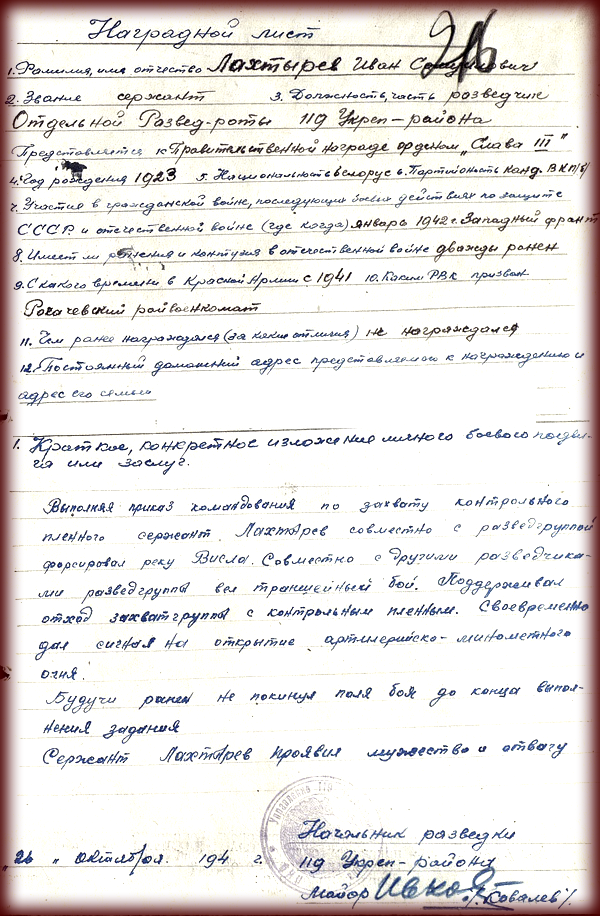 Наградной лист
1. Фамилия, имя отчество Лахтырев Иван
2. Звание сержант 3. Должность, часть разведчик
Отдельной Развед-роты 119 Укреп-района
Представляется к Правительственной награде орденом „Слава III"
4. Год рождения 1923 5. Национальность белорус 6. Партийность канд. ВКП/б/
7. Участие в гражданской войне, последующих боевых действиях по защите
СССР и отечественной войне (где когда) январь 1942 г. Западный фронт
8. Имеет ли ранения и контузия в отечественной войне дважды ранен
9. С какого времени в Красной Армии с 1941 10. Каким РВК призван
Рогачевский райвоенкомат
11. Чем ранее награждался (за какие отличия) не награждался
12. Постоянный домашний адрес представляемого к награждению и
адрес его семьи
1. Краткое, конкретное изложение личного боевого подви-
га или заслуг.
Выполняя приказ командования по захвату контрольного
пленного сержант Лахтарев совместно с разведгруппой
форсировал реку Висла. Совместно с другими разведчика-
ми разведгруппы вел траншейный бой. Поддерживал
отход захватгруппы с контрольным пленным. Своевременно
дал сигнал на открытие артилерийско-минометного
огня.
Будучи ранен не покинул поля боя до конца выпол-
нения задания
Сержант Лахтарев проявил мужество и отвагу
Начальник разведки
„26" октября 194 г. 119 Укреп-района
майор /Ковалев/.
Управление 119